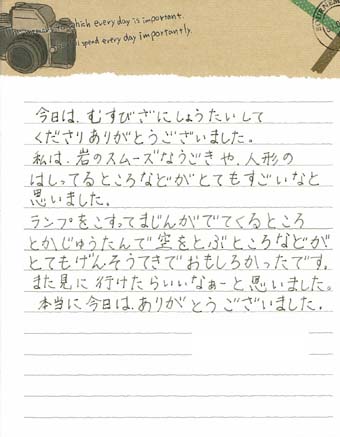 which every day is important.
spend every day importantly.
今日は、むすびざにしょうたいして
くださりありがとうございました。
私は、岩のスムーズなうごきや、人形の
はしってるところなどがとてもすごいなと
思いました。
ランプをこすってまじんがでてくるところ
とかじゅうたんで空をとぶところなどが
とてもげんそうてきでおもしろかったです。
また見に行けたらいいなぁーと思いました。
本当に今日は、ありがとうございました。